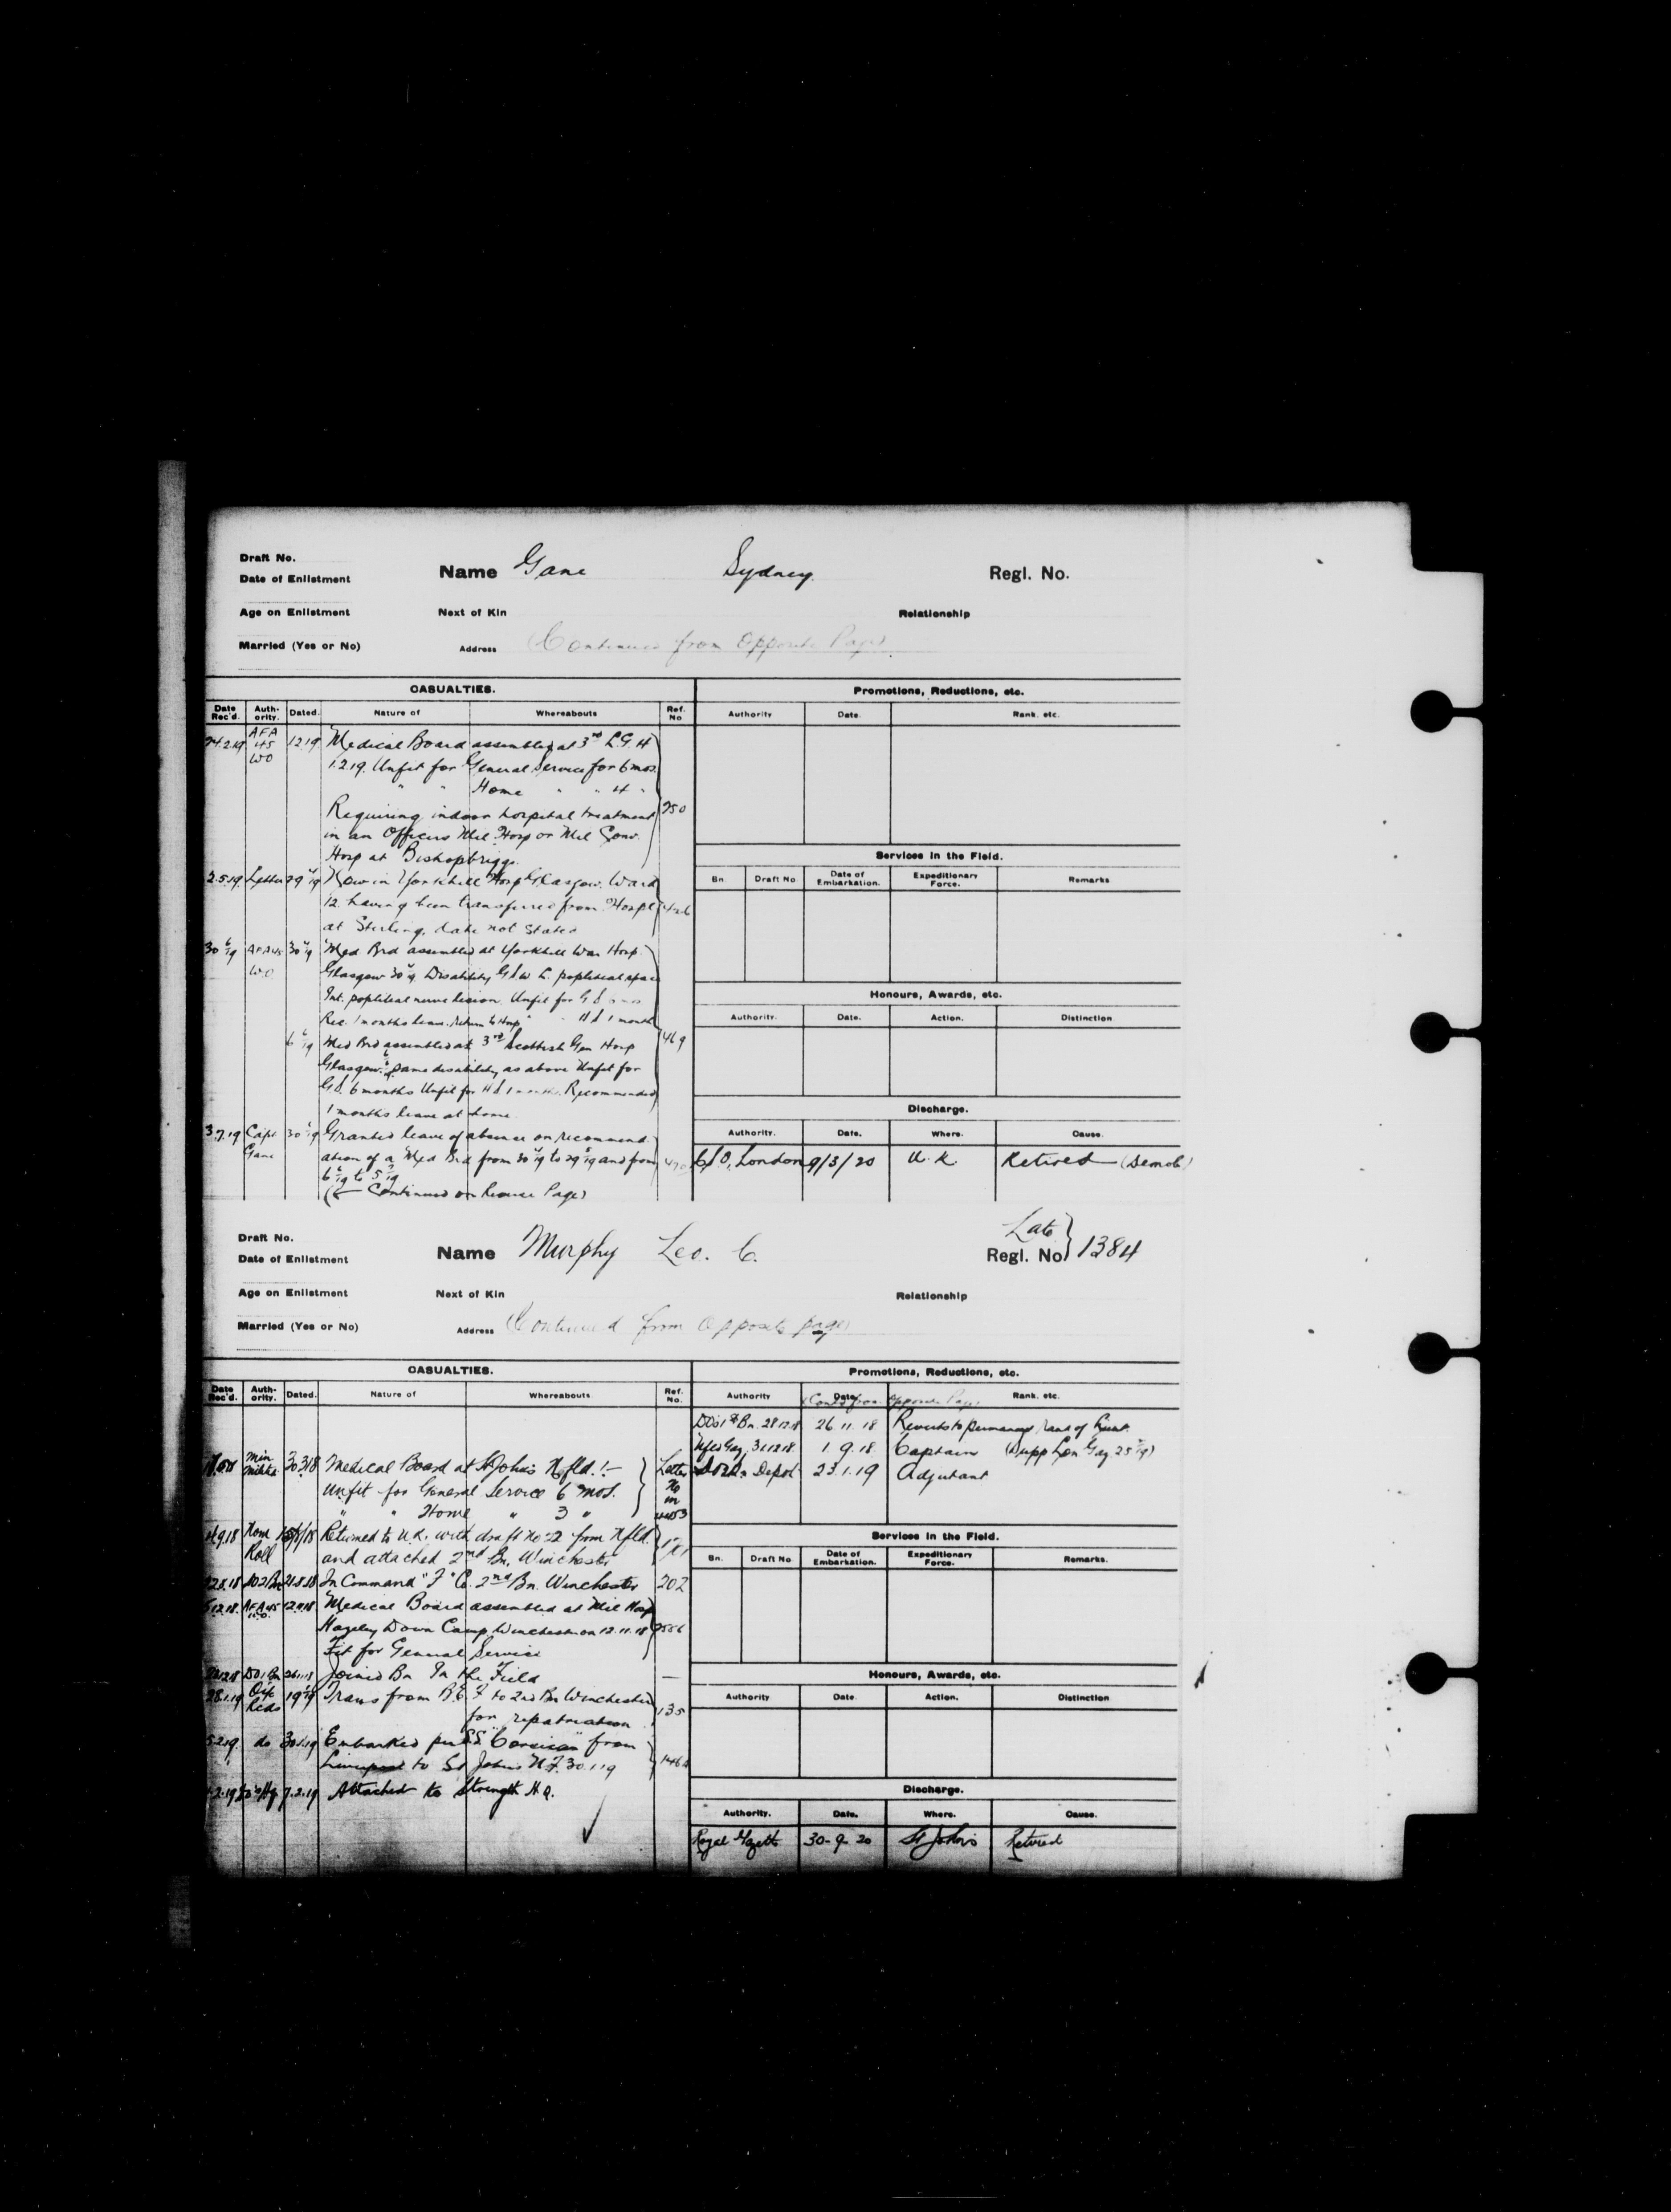 Draft No.
Date of Enlistment
Name Gane Sydney
Regl. No.
Age on Enlistment
Next of Kin
Relationship
Married (Yes or No)
Address (Continued from Opposite Page)
CASUALTIES.
Promotions, Reductions, etc.
Date Rec'd.
Auth-ority.
Dated.
Nature of
Whereabouts
Ref. No
Authority
Date.
Rank, etc.
24.2.19 AFA 45 WO 1219 Medical Board assembled at 3rd L.G.H
1.2.19. Unfit for General Service for 6 mos.
" " Home " " 4 "
Requiring indoor hospital treatment
in an Officers Mil Hosp or Mil Conv.
Hosp at Bishopbriggs.
Services in the Field.
Bn.
Draft No
Date of Embarkation.
Expeditionary Force.
Remarks
2.5.19 Letter Now in Yorkhill Hosp Glasgow. Ward
12. having been transferred from Hospl
at Sterling, date not stated
AFA45 WO Med Brd assembled at Yorkhill War Hosp
Glasgow Disability GSW L. popliteal space
Int. popliteal nerve lesion. Unfit for GS 6 mos
Rec. 1 months leave. Return to Hosp " HS 1 month
Honours, Awards, etc.
Authority.
Date.
Action.
Distinction
Med Brd assembled at 3rd Scottish Gen Hosp 469
Glasgow. same disability as above Unfit for
GS. 6 months Unfit for HS 1 month. Recommended
1 months leave at home.
Discharge.
Authority.
Date.
Where.
Cause.
3.7.19 Capt Gane Granted leave of absence on recommend-
ation of a Med Brd from to and from
to
C/O, London 9/3/20 U.K. Retired (Demob)
(← Continued on Page)
Draft No.
Date of Enlistment
Name Murphy Leo. C.
Late Regl. No. } 1384
Age on Enlistment
Next of Kin
Relationship
Married (Yes or No)
Address Continued from Opposite page
CASUALTIES.
Promotions, Reductions, etc.
Date Rec'd.
Auth-ority.
Dated.
Nature of
Whereabouts
Ref. No.
Authority
Date.
Rank, etc.
(Contd from Opposite Page)
DO 1st Bn. 28.12.18 26.11.18 Reverts to permanent rank of Lieut.
Nfld Gaz. 31.12.18 1.9.18 Captain (Supp Lon Gaz
Depot 23.1.19 Adjutant
Min Militia 30.3.18 Medical Board at St Johns Nfld:-
Unfit for General Service 6 mos.
" " Home " 3 "
Services in the Field.
Bn.
Draft No
Date of Embarkation.
Expeditionary Force.
Remarks.
4.9.18 Nom Roll Returned to U.K. with draft No 22 from Nfld
and attached 2nd Bn, Winchester
DO 2 Bn 21.8.18 In Command "F" Co. 2nd Bn. Winchester 202
5.12.18 AFA45 W.O. 12.11.18 Medical Board assembled at Mil Hosp
Hazeley Down Camp Winchester on 12.11.18
Fit for General Service
DO 1 Bn 26.11.18 Joined Bn In the Field
Honours, Awards, etc.
Authority
Date
Action.
Distinction
28.1.19 Trans from B.E.F to 2nd Bn Winchester
for repatriation 135
5.2.19 do 30.1.19 Embarked per S.S. "Corsican" from
Liverpool to St Johns N.F. 30.1.19
7.2.19 Attached to Strength H.Q.
Discharge.
Authority.
Date.
Where.
Cause.
Royal Gazette 30-9-20 St John's Retired